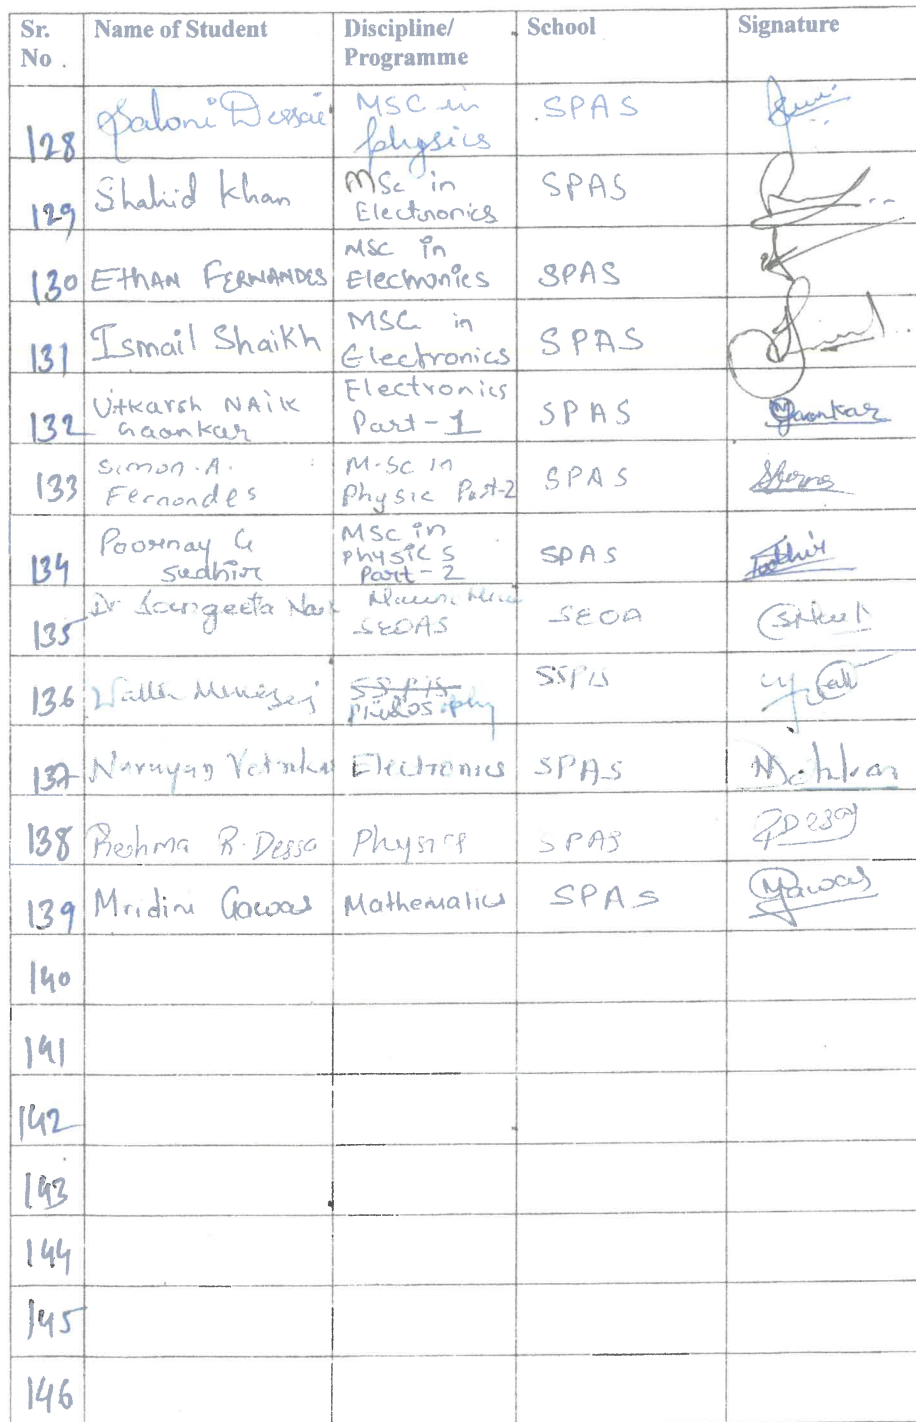 Sr. No . Name of Student Discipline/ Programme School Signature
128 Saloni Dessai MSC in physics SPAS
129 Shahid Khan MSc in Electronics SPAS
130 EtHAN FERNANDES MSC in Electronics SPAS
131 Ismail Shaikh MSC in Electronics SPAS
132 Utkarsh NAIK Gaonkar Electronics Part-1 SPAS Gaonkar
133 Simon.A. Fernandes M.Sc in Physic Part-2 SPAS
134 Poornay G Sudhir MSC in physics Part-2 SPAS Sudhir
135 Dr Sangeeta Naik SEOAS SEOA
136 Menezes SSPIS Philosophy SSPIS
137 Narayan Vetrekar Electronics SPAS
138 Reshma R. Dessa Physics SPAS
139 Mridini Gawas Mathematics SPAS Gawas
140
141
142
143
144
145
146